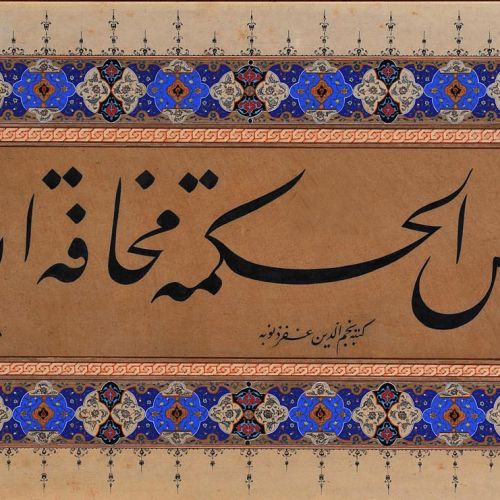 س الحكمة مخافة ا
كتبه نجم الدين غفر ذنوبه